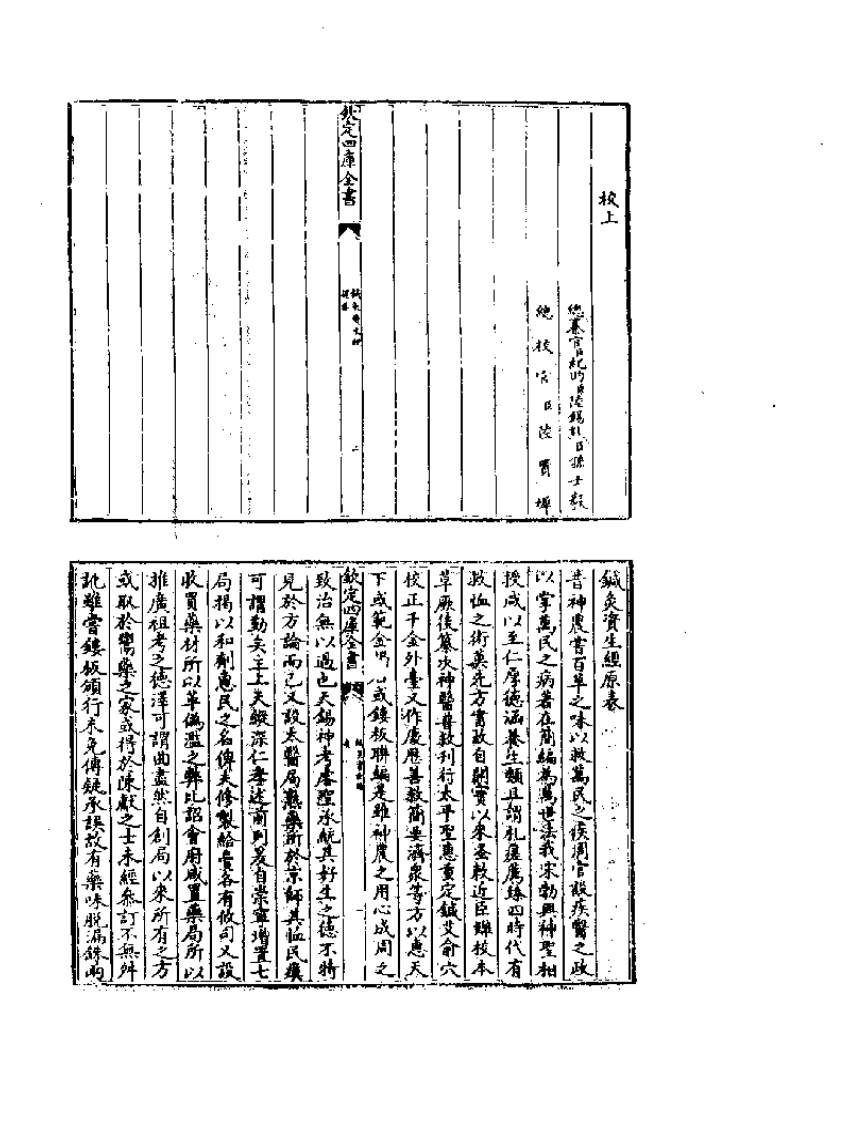 校上
總纂官臣紀昀臣陸錫熊臣孫士毅
總校官臣陸費墀
欽定四庫全書
鍼灸資生經
提要
二
鍼灸資生經原表
昔神農嘗百草之味以救萬民之疾周官設疾醫之政
以掌萬民之病著在簡編為萬世法我宋勃興神聖相
授咸以至仁厚德涵養生類且謂札瘥薦臻四時代有
救恤之術莫先方書故自開寶以來蚤敕近臣讎校本
草厥後纂次神醫普救刊行太平聖惠重定鍼艾俞穴
校正千金外臺又作慶歷善救簡要濟衆等方以惠天
下或範金 或鏤板聯編是雖神農之用心成周之
欽定四庫全書
一
致治無以過也天錫神考睿聖承統其好生之德不特
見於方論而已又設太醫局熟藥所於京師其恤民瘼
可謂勤矣主上天縱深仁孝述前列爰自崇寧增置七
局揭以和劑惠民之名俾夫修製給賣各有攸司又設
收買藥材所以革偽濫之弊比詔會府咸置藥局所以
推廣祖考之德澤可謂曲盡然自創局以來所有之方
或取於鬻藥之家或得於陳獻之士未經參訂不無舛
訛雖嘗鏤板頒行未免傳疑承誤故有藥味脫漏銖兩